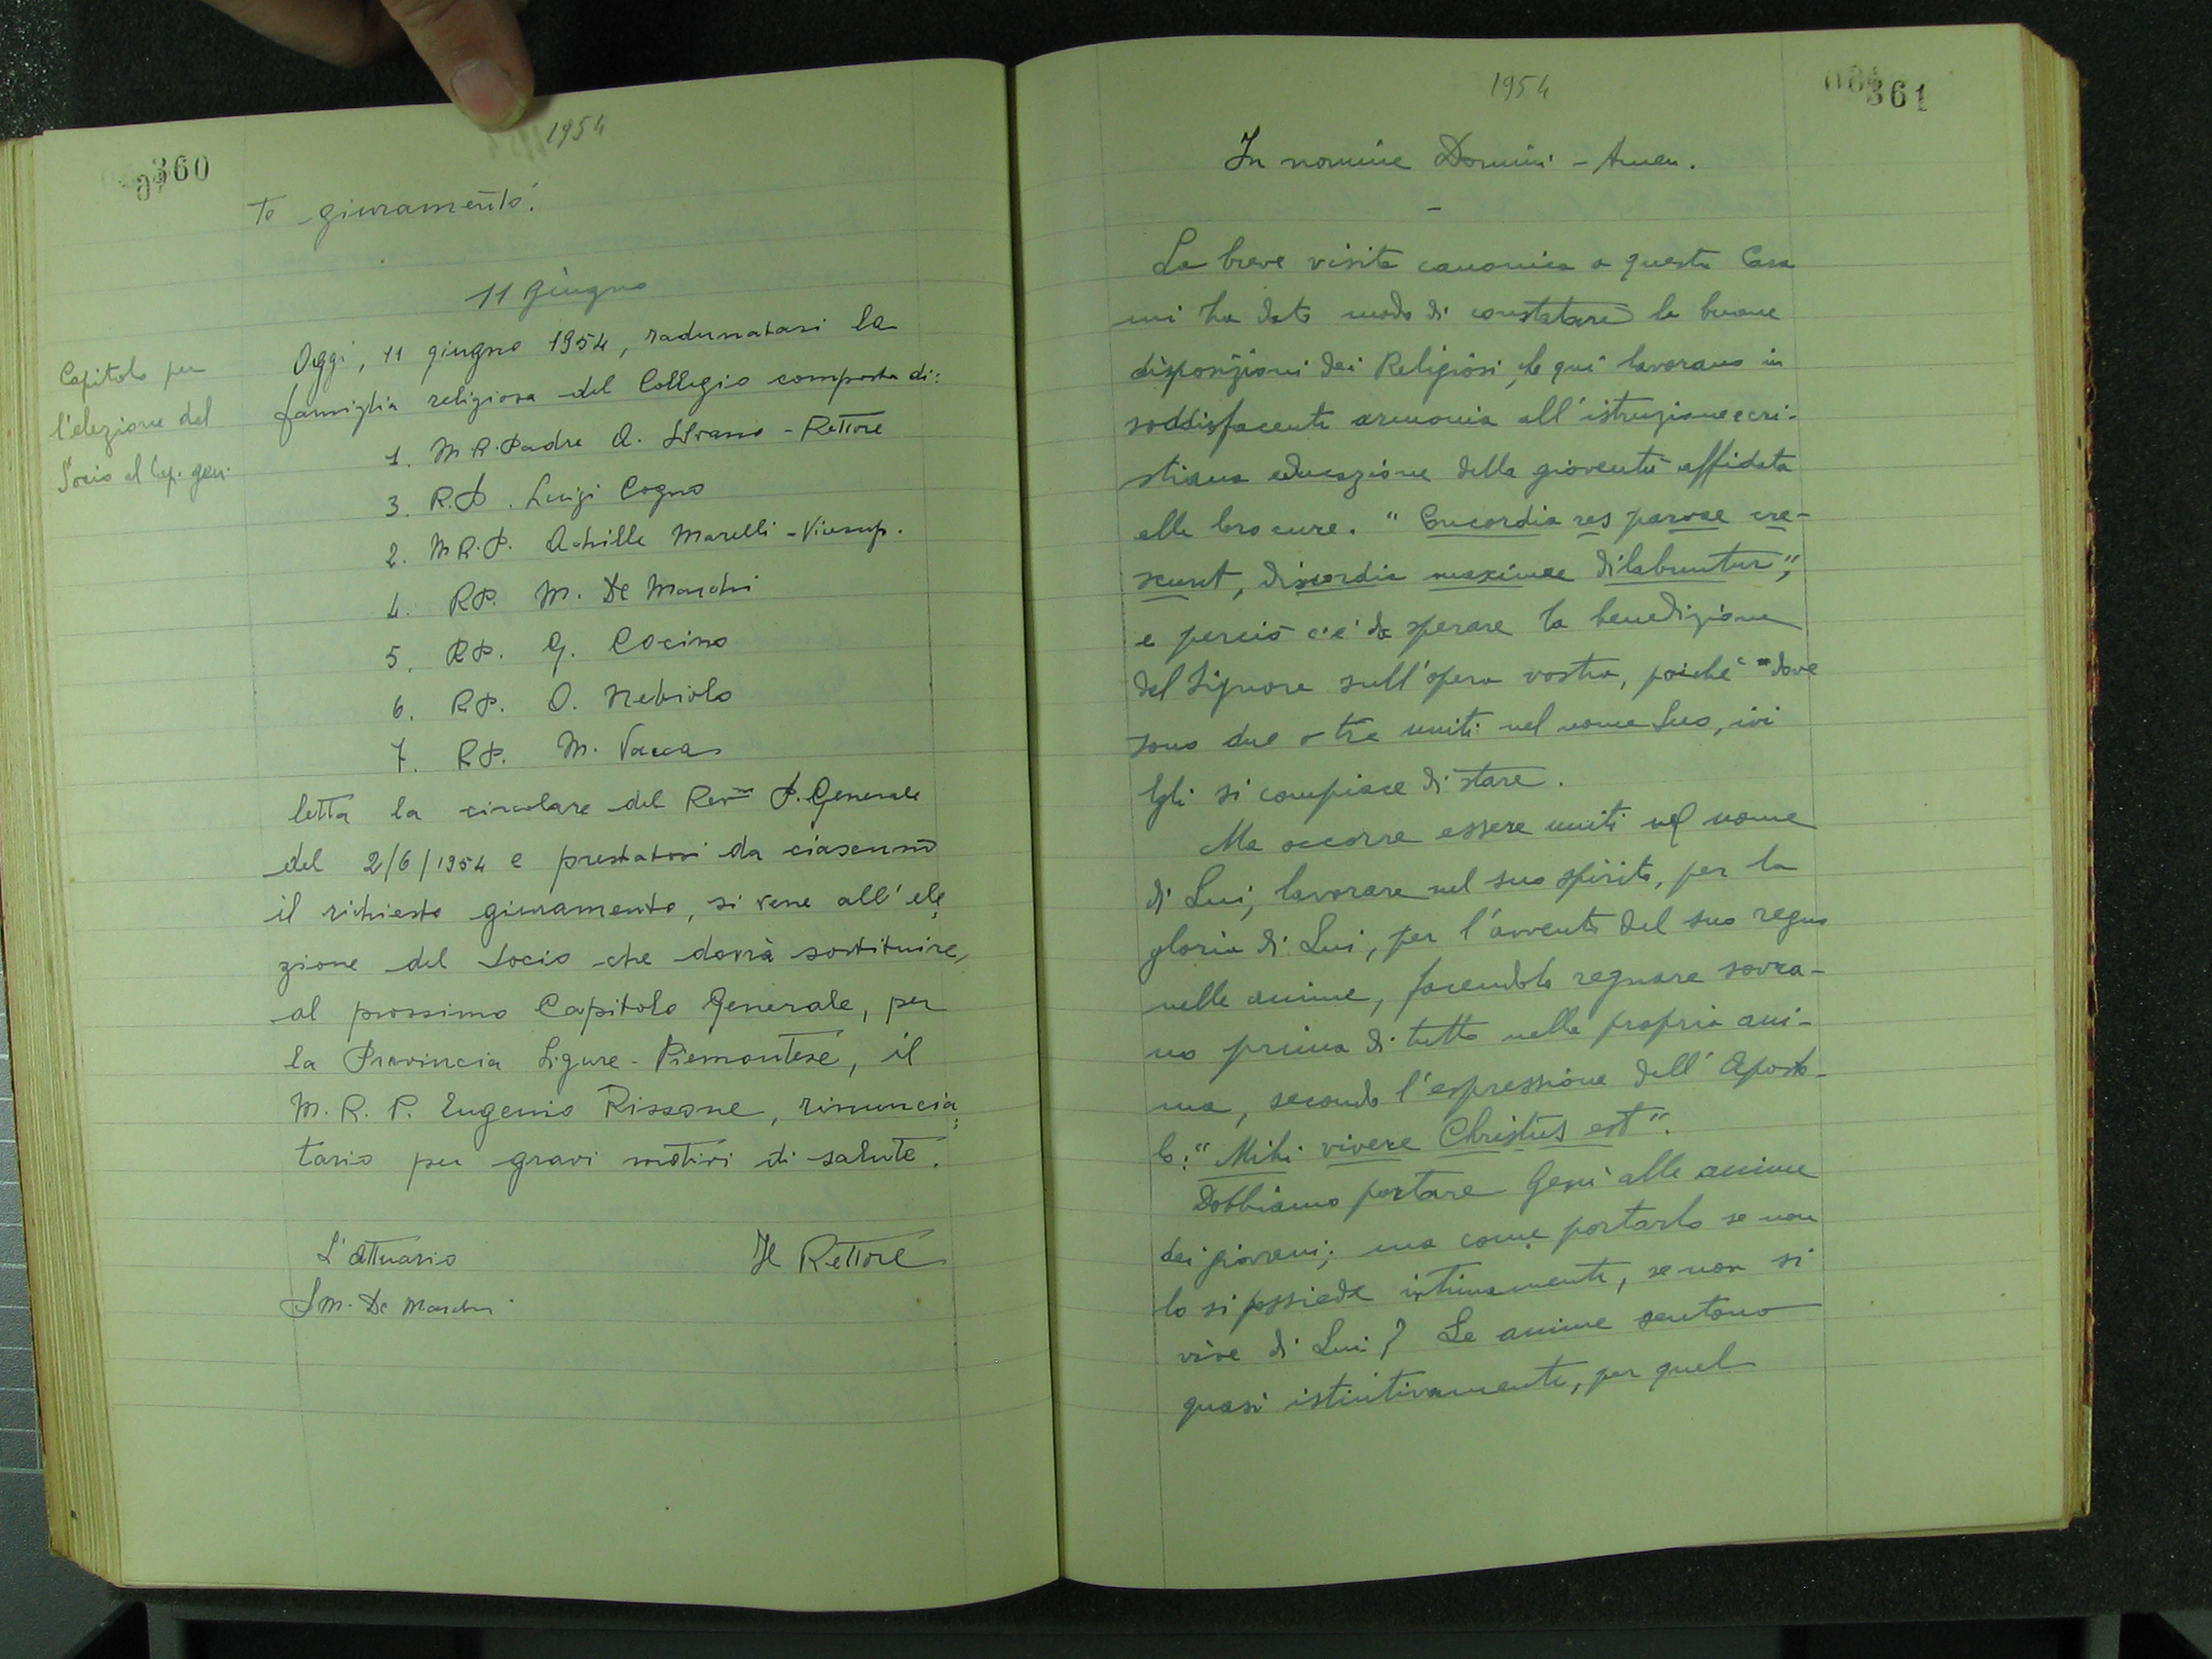 360
1954
to giuramento.
11 giugno
Capitolo per
l'elezione del
Socio al Cap. gen.
Oggi, 11 giugno 1954, radunatasi la
famiglia religiosa del Collegio composta di:
1. M. R. Padre A. - Rettore
3. R. P. Luigi Cogno
2. M. R. P. Achille Marelli - Vicesup.
4. R. P. M. De Marchi
5. R. P. G. Cocino
6. R. P. O. Nebiolo
7. R. P. M. Vacca
letta la circolare del Rev.mo P. Generale
del 2/6/1954 e prestatosi da ciascuno
il richiesto giuramento, si vene all'ele
zione del Socio che dovrà sostituire,
al prossimo Capitolo Generale, per
la Provincia Ligure-Piemontese, il
M. R. P. Eugenio Rissone, rinuncia
tario per gravi motivi di salute.
L'attuario
Il Rettore
P. M. De Marchi
361
1954
In nomine Domini - Amen.
La breve visita canonica a questa Casa
mi ha dato modo di constatare le buone
disposizioni dei Religiosi, che qui lavorano in
soddisfacente armonia all'istruzione e cri-
stiana educazione della gioventù affidata
alle loro cure. "Concordia res parvae cre-
scunt, discordia maximae dilabuntur",
e perciò c'è da sperare la benedizione
del Signore sull'opera vostra, poiché "dove
sono due o tre uniti nel nome Suo, ivi
Egli si compiace di stare.
Ma occorre essere uniti nel nome
di Lui, lavorare nel suo spirito, per la
gloria di Lui, per l'avvento del suo regno
nelle anime, facendolo regnare sovra-
no prima di tutto nella propria ani-
ma, secondo l'espressione dell'Aposto-
lo: "Mihi vivere Christus est".
Dobbiamo portare Gesù alle anime
dei giovani; ma come portarlo se non
lo si possiede intimamente, se non si
vive di Lui? Le anime sentono
quasi istintivamente, per quel